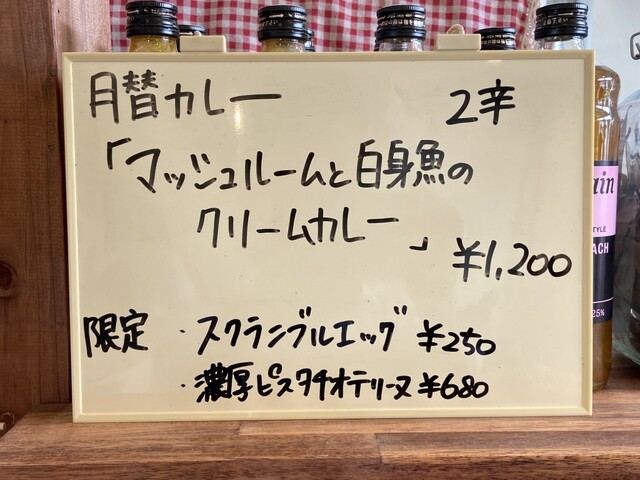 月替カレー 2辛
「マッシュルームと白身魚の
クリームカレー」 ¥1,200
限定 ・スクランブルエッグ ¥250
・濃厚ピスタチオテリーヌ ¥680
ain
STYLE
ACH
25%